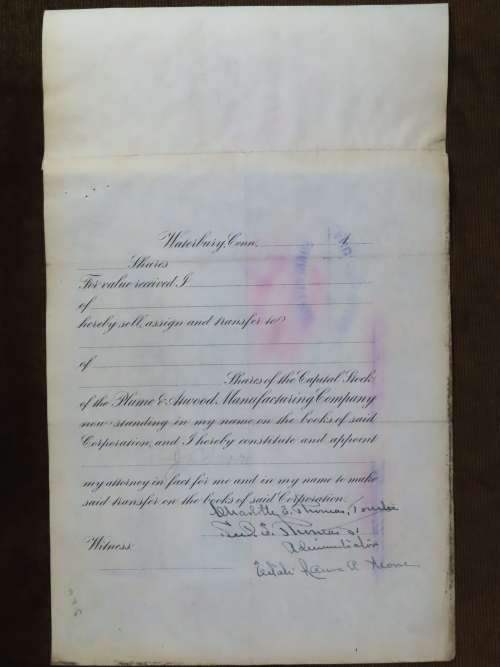 Waterbury, Conn. 1
Shares
For value received I
of
hereby sell, assign and transfer to
of
Shares of the Capital Stock
of the Plume & Atwood Manufacturing Company
now standing in my name on the books of said
Corporation, and I hereby constitute and appoint
my attorney in fact for me and in my name to make
said transfer on the books of said Corporation.
Charlotte E. Thomas,
E. Thomas
Witness:
Administrator
Estate